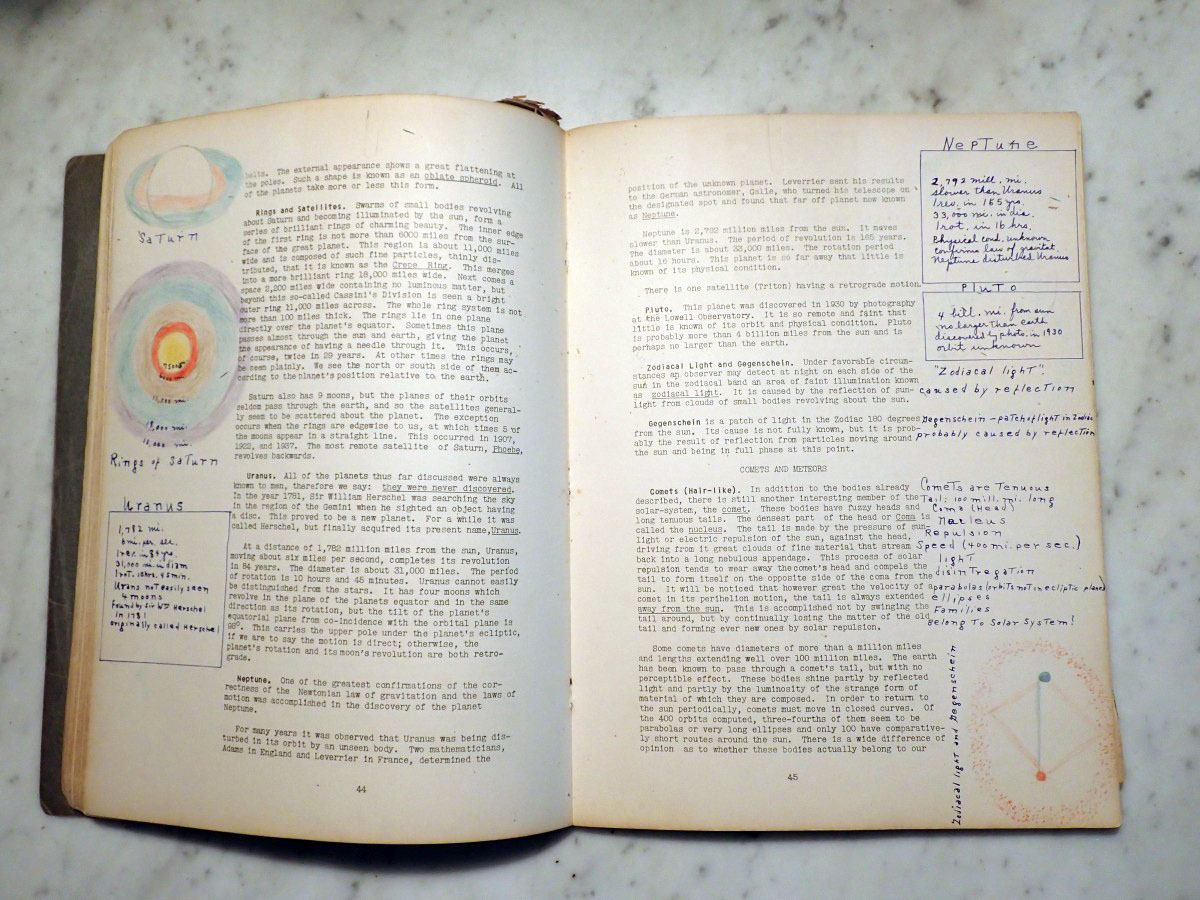 belts. The external appearance shows a great flattening at
the poles. Such a shape is known as an oblate spheroid. All
of the planets take more or less this form.
Rings and Satellites. Swarms of small bodies revolving
about Saturn and becoming illuminated by the sun, form a
series of brilliant rings of charming beauty. The inner edge
of the first ring is not more than 6000 miles from the sur-
face of the great planet. This region is about 11,000 miles
wide and is composed of such fine particles, thinly dis-
tributed, that it is known as the Crepe Ring. This merges
into a more brilliant ring 18,000 miles wide. Next comes a
space 2,200 miles wide containing no luminous matter, but
beyond this so-called Cassini's Division is seen a bright
outer ring 11,000 miles across. The whole ring system is not
more than 100 miles thick. The rings lie in one plane
directly over the planet's equator. Sometimes this plane
passes almost through the sun and earth, giving the planet
the appearance of having a needle through it. This occurs,
of course, twice in 29 years. At other times the rings may
be seen plainly. We see the north or south side of them ac-
cording to the planet's position relative to the earth.
Saturn also has 9 moons, but the planes of their orbits
seldom pass through the earth, and so the satellites general-
ly seem to be scattered about the planet. The exception
occurs when the rings are edgewise to us, at which times 5 of
the moons appear in a straight line. This occurred in 1907,
1922, and 1937. The most remote satellite of Saturn, Phoebe,
revolves backwards.
Uranus. All of the planets thus far discussed were always
known to men, therefore we say: they were never discovered.
In the year 1781, Sir William Herschel was searching the sky
in the region of the Gemini when he sighted an object having
a disc. This proved to be a new planet. For a while it was
called Herschel, but finally acquired its present name, Uranus.
At a distance of 1,782 million miles from the sun, Uranus,
moving about six miles per second, completes its revolution
in 84 years. The diameter is about 31,000 miles. The period
of rotation is 10 hours and 45 minutes. Uranus cannot easily
be distinguished from the stars. It has four moons which
revolve in the plane of the planets equator and in the same
direction as its rotation, but the tilt of the planet's
equatorial plane from co-incidence with the orbital plane is
98°. This carries the upper pole under the planet's ecliptic,
if we are to say the motion is direct; otherwise, the
planet's rotation and its moon's revolution are both retro-
grade.
Neptune. One of the greatest confirmations of the cor-
rectness of the Newtonian law of gravitation and the laws of
motion was accomplished in the discovery of the planet
Neptune.
For many years it was observed that Uranus was being dis-
turbed in its orbit by an unseen body. Two mathematicians,
Adams in England and Leverrier in France, determined the
44
Saturn
75000
11,000 mi.
18,000 mi.
11,000 mi.
Rings of Saturn
Uranus
1,782 mi.
6 mi. per sec.
1 rev. in 84 yrs.
31,000 mi. in diam
1 rot. 10 hrs. 45 min.
Urans not easily seen
4 moons
found by Sir Wm Herschel
in 1781
originally called Herschel
position of the unknown planet. Leverrier sent his results
to the German astronomer, Galle, who turned his telescope on
the designated spot and found that far off planet now known
as Neptune.
Neptune is 2,792 million miles from the sun. It moves
slower than Uranus. The period of revolution is 165 years.
The diameter is about 33,000 miles. The rotation period
about 16 hours. This planet is so far away that little is
known of its physical condition.
There is one satellite (Triton) having a retrograde motion.
Pluto. This planet was discovered in 1930 by photography
at the Lowell Observatory. It is so remote and faint that
little is known of its orbit and physical condition. Pluto
is probably more than 4 billion miles from the sun and is
perhaps no larger than the earth.
Zodiacal Light and Gegenschein. Under favorable circum-
stances an observer may detect at night on each side of the
sun in the zodiacal band an area of faint illumination known
as zodiacal light. It is caused by the reflection of sun-
light from clouds of small bodies revolving about the sun.
Gegenschein is a patch of light in the Zodiac 180 degrees
from the sun. Its cause is not fully known, but it is prob-
ably the result of reflection from particles moving around
the sun and being in full phase at this point.
COMETS AND METEORS
Comets (Hair-like). In addition to the bodies already
described, there is still another interesting member of the
solar-system, the comet. These bodies have fuzzy heads and
long tenuous tails. The densest part of the head or Coma is
called the nucleus. The tail is made by the pressure of sun-
light or electric repulsion of the sun, against the head,
driving from it great clouds of fine material that stream
back into a long nebulous appendage. This process of solar
repulsion tends to wear away the comet's head and compels the
tail to form itself on the opposite side of the coma from the
sun. It will be noticed that however great the velocity of a
comet in its perihelion motion, the tail is always extended
away from the sun. This is accomplished not by swinging the
tail around, but by continually losing the matter of the old
tail and forming ever new ones by solar repulsion.
Some comets have diameters of more than a million miles
and lengths extending well over 100 million miles. The earth
has been known to pass through a comet's tail, but with no
perceptible effect. These bodies shine partly by reflected
light and partly by the luminosity of the strange form of
material of which they are composed. In order to return to
the sun periodically, comets must move in closed curves. Of
the 400 orbits computed, three-fourths of them seem to be
parabolas or very long ellipses and only 100 have comparative-
ly short routes around the sun. There is a wide difference of
opinion as to whether these bodies actually belong to our
45
Neptune
2,792 mill. mi.
slower than Uranus
1 rev. in 165 yrs.
33,000 mi. in dia.
1 rot. in 16 hrs.
Physical cond. unknown
confirms law of gravitat.
Neptune disturbed Uranus
Pluto
4 bill. mi. from sun
no larger than earth
discovered by photo. in 1930
orbit unknown
"Zodiacal light".
caused by reflection
Gegenschein - patch of light in Zodiac
probably caused by reflection
Comets are Tenuous
Tail: 100 mill. mi. long
Coma (Head)
Nucleus
Repulsion
Speed (400 mi. per sec.)
light
disintregation
parabolas (orbits not in ecliptic plane)
ellipses
Families
Belong To Solar System!
Zodiacal light and Gegenschein